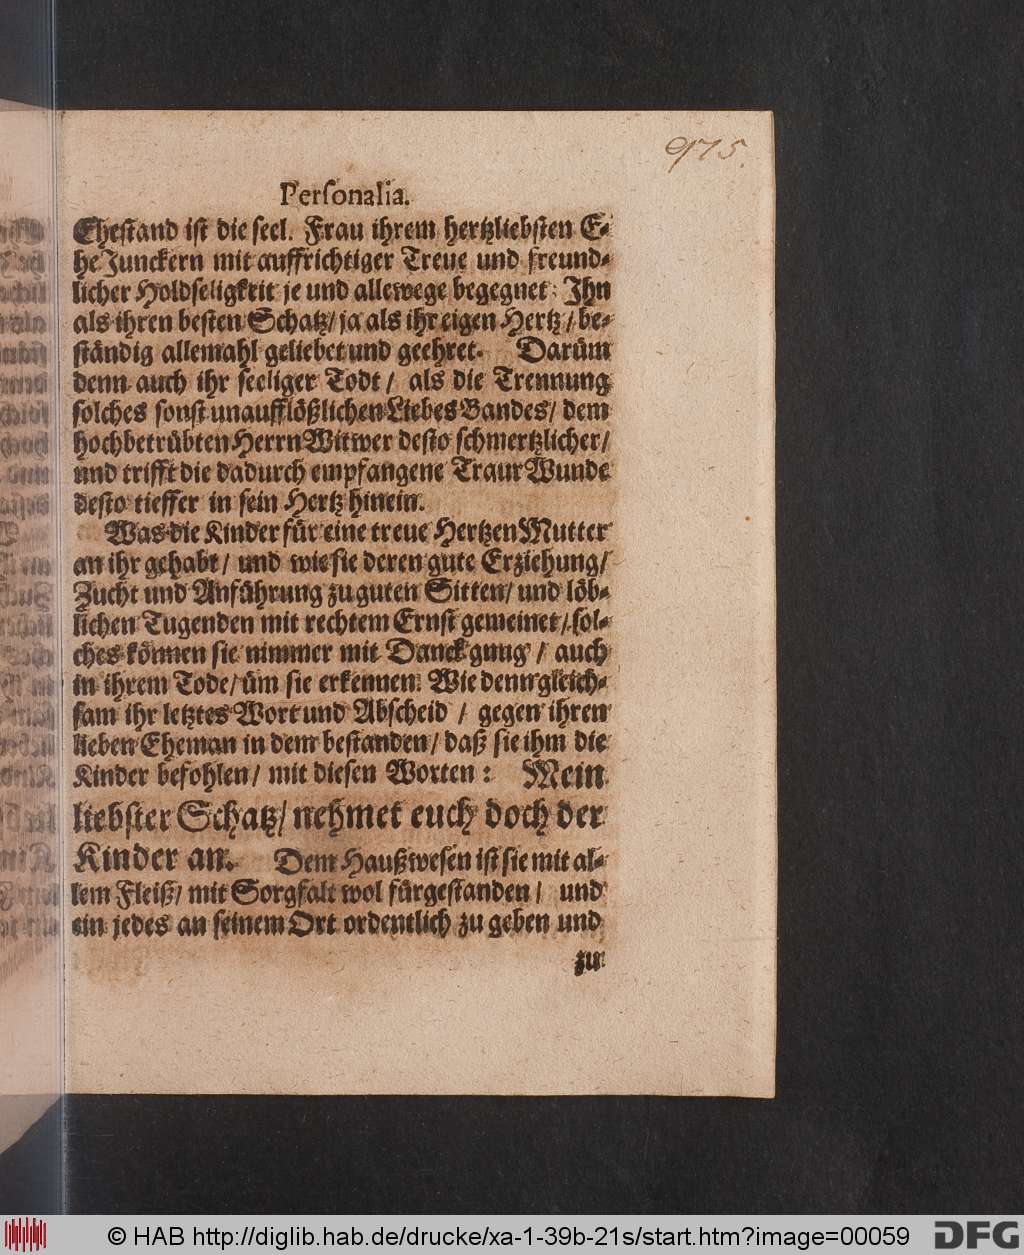 975.
Personalia.
Ehestand ist die seel. Frau ihrem hertzliebsten E-
he Junckern mit auffrichtiger Treue und freund-
licher Holdseligkeit je und allewege begegnet; Ihn
als ihren besten Schatz/ ja als ihr eigen Hertz/ be-
ständig allemahl geliebet und geehret. Darüm
denn auch ihr seeliger Todt/ als die Trennung
solches sonst unaufflößlichen Liebes Bandes/ dem
hochbetrübten Herrn Witwer desto schmertzlicher/
und trifft die dadurch empfangene Traur Wunde
desto tieffer in sein Hertz hinein.
Was die Kinder für eine treue Hertzen Mutter
an ihr gehabt/ und wie sie deren gute Erziehung/
Zucht und Anführung zu guten Sitten/ und löb-
lichen Tugenden mit rechtem Ernst gemeinet/ sol-
ches können sie nimmer mit Danck gnug/ auch
in ihrem Tode/ üm sie erkennen. Wie denn gleich-
sam ihr letztes Wort und Abscheid/ gegen ihren
lieben Eheman in dem bestanden/ daß sie ihm die
Kinder befohlen/ mit diesen Worten: Mein
liebster Schatz/ nehmet euch doch der
Kinder an. Dem Haußwesen ist sie mit al-
lem Fleiß/ mit Sorgfalt wol fürgestanden/ und
ein jedes an seinem Ort ordentlich zu geben und
zu
© HAB http://diglib.hab.de/drucke/xa-1-39b-21s/start.htm?image=00059
DFG